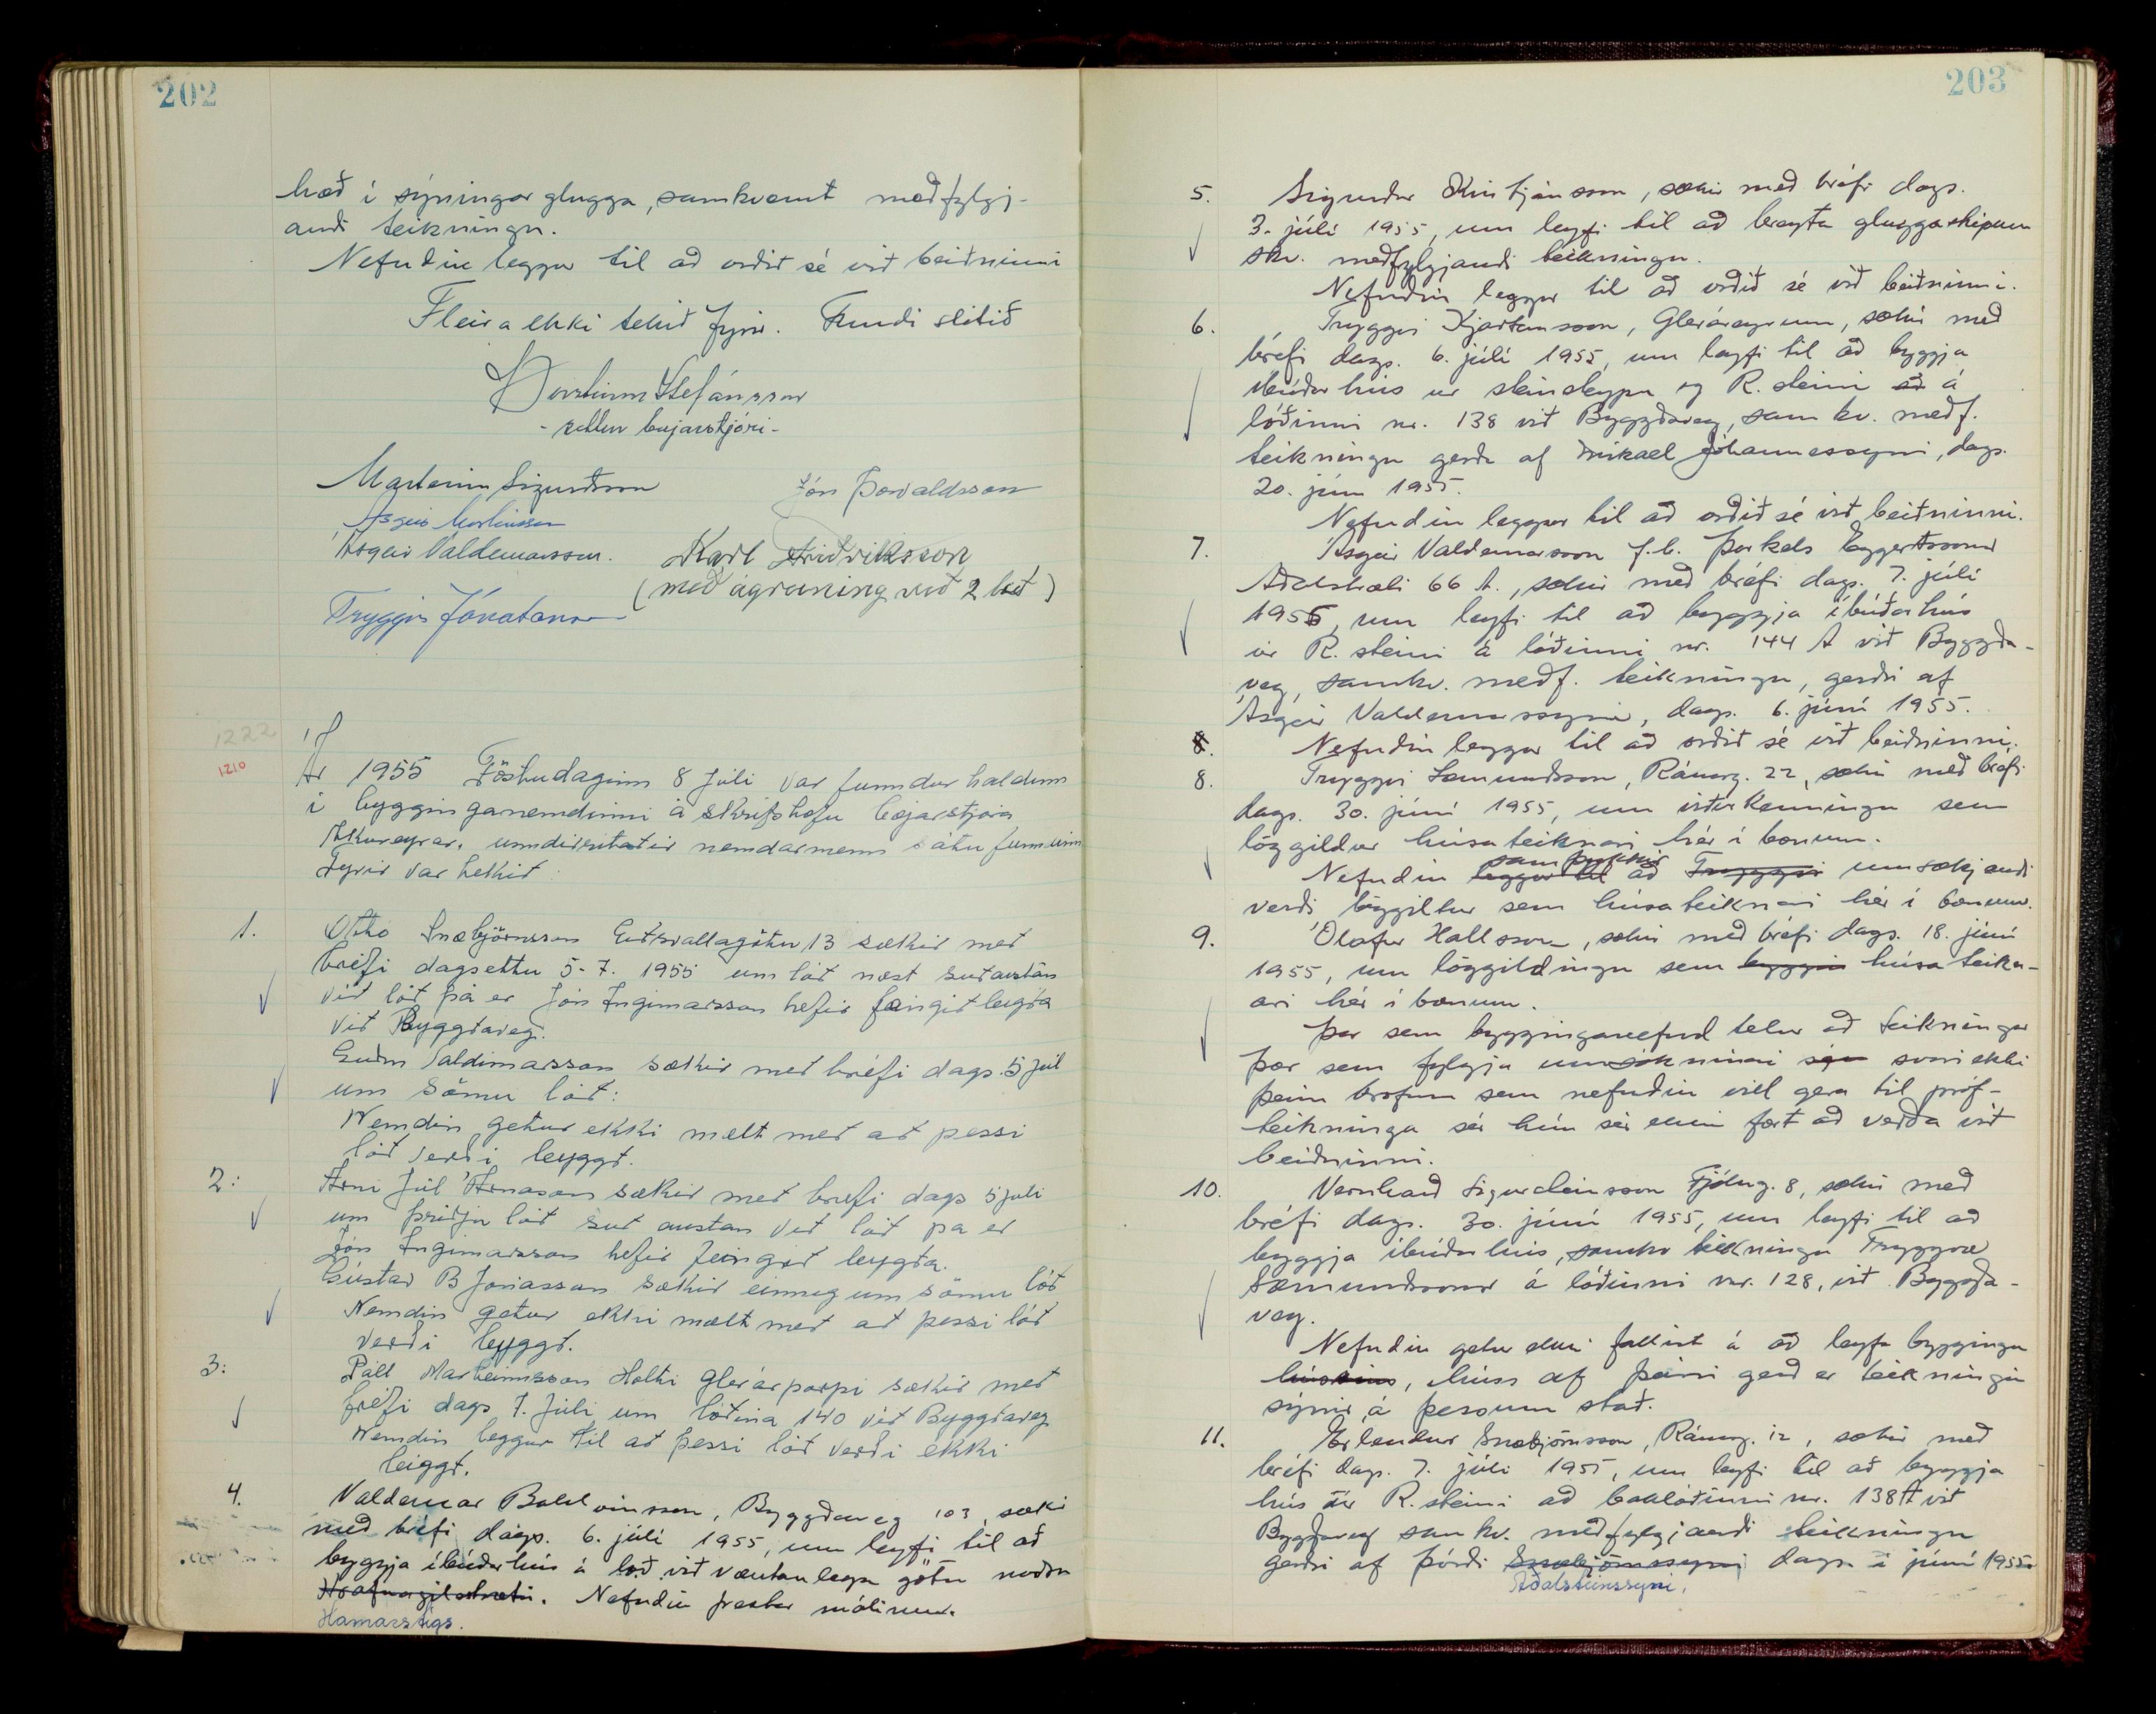 202
hæð í sýningarglugga, samkvæmt meðfylgj-
andi teikningu.
Nefndin leggur til að orðið sé við beiðninni
Fleira ekki tekið fyrir. Fundi slitið
Þorsteinn Stefánsson
- settur bæjarstjóri -
Marteinn Sigurðsson
Jón Þorvaldsson
Ásgeir Markússon
Ásgeir Valdemarsson.
Karl Friðriksson
(með ágreining við 2 lið)
Tryggvi Jónatansson
1222
1210
Ár 1955 Föstudaginn 8 Júli var funndur haldinn
i bygginganemdinni á skrifstofu bæjarstjóra
Akureyrar. unndirritatir nemdarmenn sátu funninn
Fyrir var tekit:
1.
Otto Snæbjörnsson Eitsvallagötu 13 sækir met
bréfi dagsettu 5-7. 1955 um lót næst sutaustan
vit lót þá er Jón Ingimarsson hefir feingit leigta
vit Byggtaveg.
Guðm Valdimarsson sækir met bréfi dags. 5 júl
um sömu lót:
Nemdin getur ekki mælt met at þessi
lót verði leyggt.
2:
Árni Júl Árnason sækir met brefi dags 5 juli
um þriðju lót sut austan vit lót þa er
Jón Ingimarsson hefir feingit leygta.
Gústav B Jónasson sækir einnig um sömu lót
Nemdin getur ekki mælt met at þessi lót
verði leyggt.
3:
Páll Marteinnsson Holti glerárþorpi sækir met
bréfi dags 7. Júli um lótina 140 vit Byggtaveg
Nemdin leggur til at þessi lót verði ekki
leiggt.
4.
Valdemar Baldvinsson, Byggðaveg 103, sæki
með bréfi, dags. 6. júlí 1955, um leyfi til að
byggja íbúðarhús á lóð við væntanlega götu norðan
Hrafnagilsstrætis. Nefndin frestar málinu.
Hamarstígs.
203
5.
Sigurður Kristjánsson, sækir með bréfi dags.
3. júlí 1955, um leyfi til að breyta gluggaskipun
skv. meðfylgjandi teikningu.
Nefndin leggur til að orðið sé við beiðninni.
6.
Tryggvi Kjartansson, Gleráreyrum, sækir með
bréfi dags. 6. júlí 1955, um leyfi til að byggja
íbúðarhús úr steinsteypu og R. steini að á
lóðinni nr. 138 við Byggðaveg, samkv. meðf.
teikningu gerða af Mikael Jóhannessyni, dags.
20. júní 1955.
Nefndin leggur til að orðið sé við beiðninni.
7.
Ásgeir Valdemarsson f.h. Þorkels Eggertssonar
Aðalstræti 66 A., sækir með bréfi dags. 7. júlí
1955, um leyfi til að byggja íbúðarhús
úr R. steini á lóðinni nr. 144 A við Byggða-
veg, samkv. meðf. teikningu, gerðri af
Ásgeir Valdemarssyni, dags. 6. júní 1955.
8.
Nefndin leggur til að orðið sé við beiðninni.
8.
Tryggvi Sæmundsson, Ránarg. 22, sækir með bréfi
dags. 30. júní 1955, um viðurkenningu sem
löggildur húsateiknari hér í bænum.
samþykkir
Nefndin leggur til að Tryggvi umsækjandi
verði löggiltur sem húsateiknari hér í bænum.
9.
Ólafur Hallsson, sækir með bréfi dags. 18. júní
1955, um löggildingu sem byggin húsateikn-
ari hér í bænum.
Þar sem bygginganefnd telur að teikningar
þær sem fylgja umsókninni svari ekki
þeim kröfum sem nefndin vill gera til próf-
teikninga sér hún sér ekki fært að verða við
beiðninni.
10.
Vernharð Sigursteinsson Fjólug. 8, sækir með
bréfi dags. 30. júní 1955, um leyfi til að
byggja íbúðarhús, samkv teikningu Tryggva
Sæmundssonar á lóðinni nr. 128, við Byggða-
veg.
Nefndin getur ekki fallist á að leyfa byggingu
hússins, húss af þeirri gerð er teikningin
sýnir, á þessum stað.
11.
Erlendur Snæbjörnsson, Ránarg. 12, sækir með
bréfi dags. 7. júlí 1955, um leyfi til að byggja
hús úr R. steini að baklóðinni nr. 138 A við
Byggðaveg samkv. meðfylgjandi teikningu
gerðri af Þórði Snæbjörnssyni dags. í júní 1955
Aðalsteinssyni,